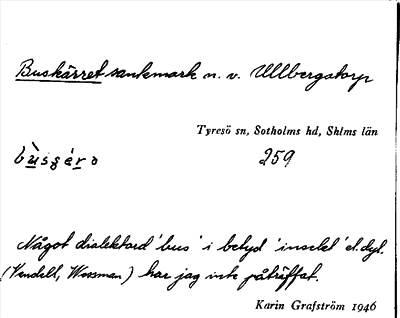 Buskärret sankmark n. v. Ullbergstorp
Tyresö sn, Sotholms hd, Shlms län
259
Något dialektord 'bus' i betyd 'insekt' el. dyl.
(Vendell, Wessman) har jag inte påträffat.
Karin Grafström 1946